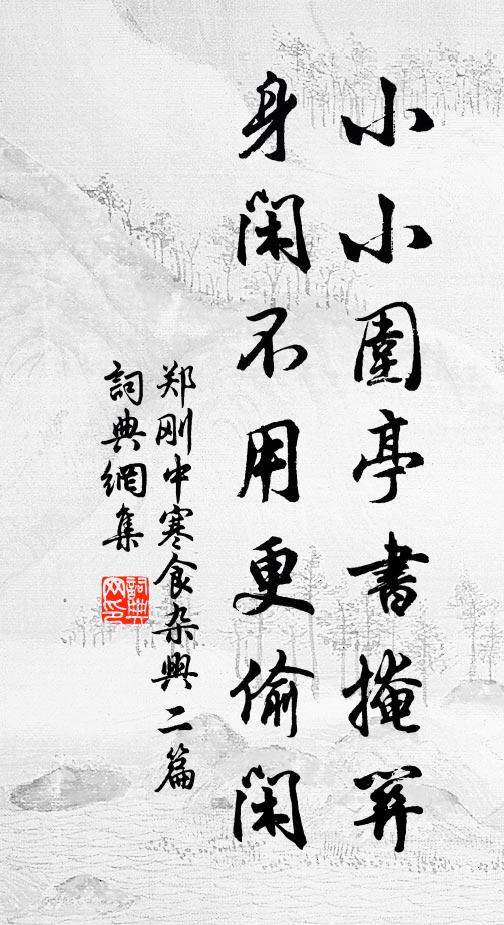 小小園亭書掩關
身閑不用更偷閑
郑刚中寒食杂興二篇
詞典網集
詞典
网印